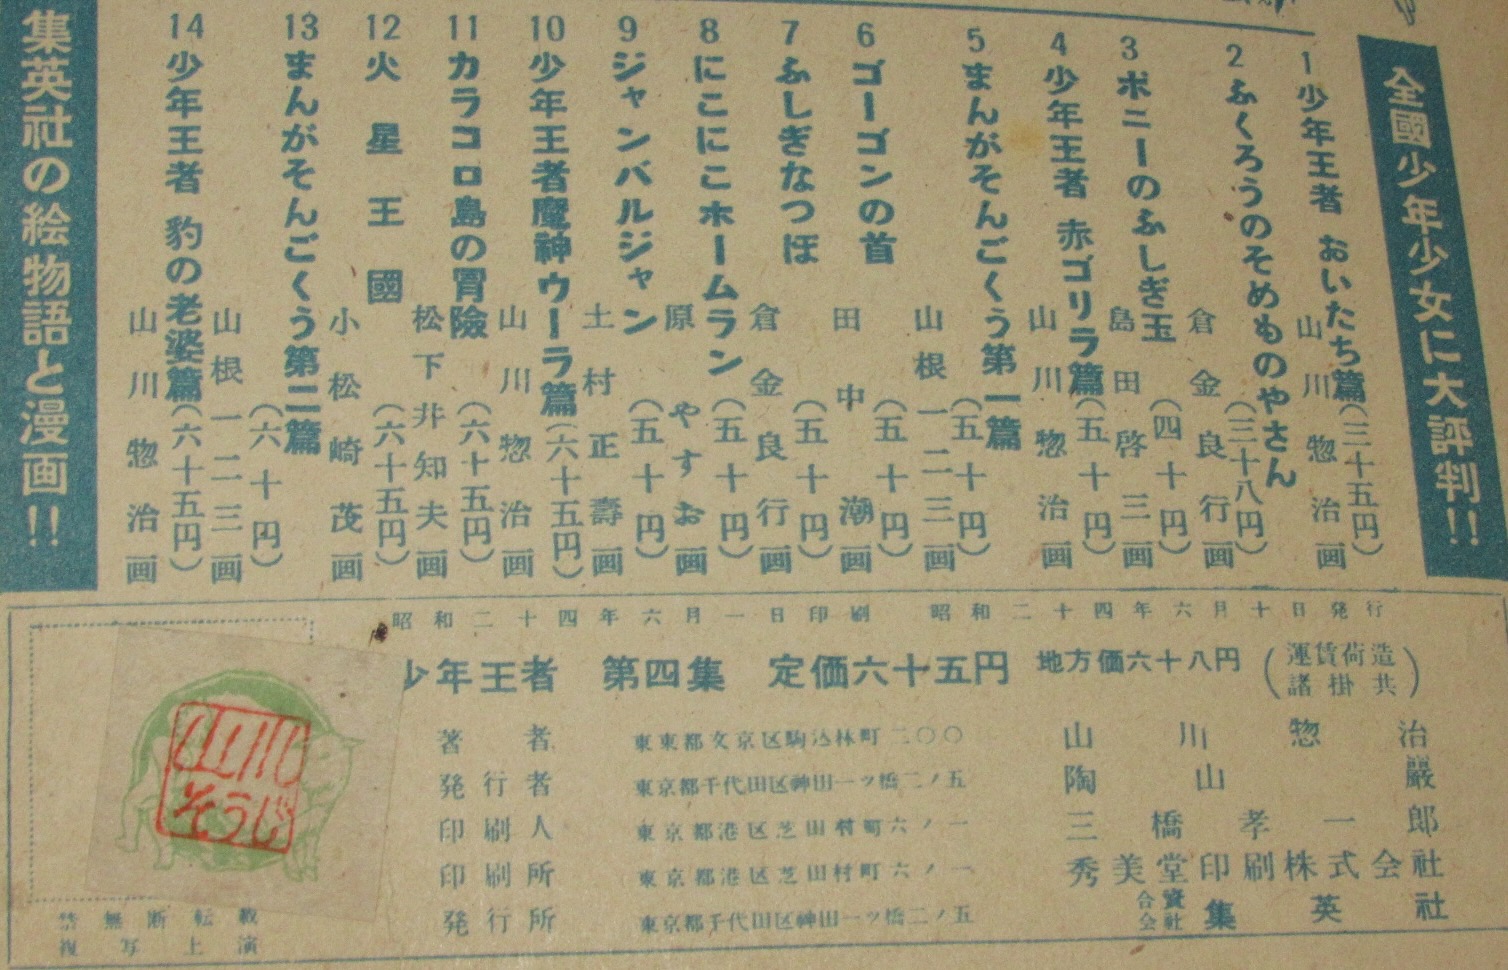 全國少年少女に大評判!!
1 少年王者 おいたち篇(三十五円)
山川惣治画
2 ふくろうのそめものやさん
(三十八円)
倉金良行画
3 ポニーのふしぎ玉
(四十円)
島田啓三画
4 少年王者 赤ゴリラ篇(五十円)
山川惣治画
5 まんがそんごくう第一篇
(五十円)
山根一二三画
6 ゴーゴンの首
(五十円)
田中潮画
7 ふしぎなつぼ
(五十円)
倉金良行画
8 にこにこホームラン
(五十円)
原やすお画
9 ジャンバルジャン
(五十円)
土村正壽画
10 少年王者魔神ウーラ篇(六十五円)
山川惣治画
11 カラコロ島の冒險
(六十五円)
松下井知夫画
12 火星王國
(六十五円)
小松崎茂画
13 まんがそんごくう第二篇
(六十円)
山根一二三画
14 少年王者 豹の老婆篇(六十五円)
山川惣治画
集英社の絵物語と漫画!!
昭和二十四年六月一日印刷 昭和二十四年六月十日発行
少年王者 第四集 定価六十五円 地方価六十八円(運賃荷造諸掛共)
著者 東東都文京区駒込林町二〇〇 山川惣治
発行者 東京都千代田区神田一ッ橋二ノ五 陶山巖
印刷人 東京都港区芝田村町六ノ一 三橋孝一郎
印刷所 東京都港区芝田村町六ノ一 秀美堂印刷株式会社
発行所 東京都千代田区神田一ッ橋二ノ五 合資会社 集英社
山川
そうじ
禁無断転載
複写上演